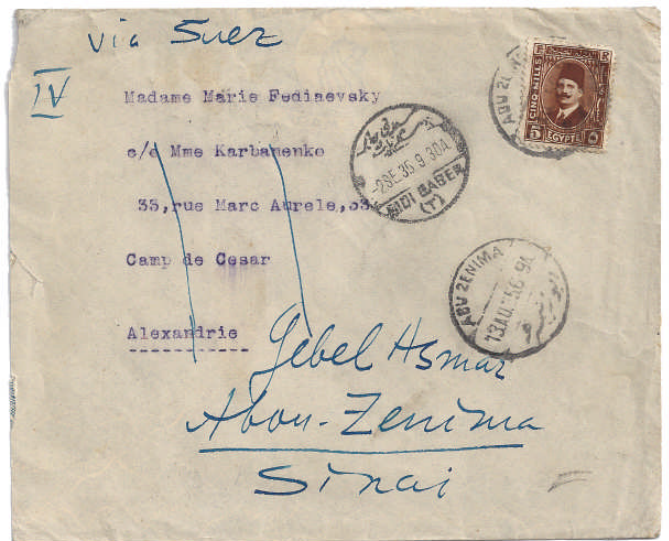 via Suez
IV
Madame Marie Fediaevsky
c/o Mme Karbanenko
33, rue Marc Aurele,
Camp de Cesar
Alexandrie
Gebel Asmar
Abou-Zenima
Sinai
CINQ MILLS
5 ٥
EGYPTE
ABU ZE
سيدي جابر
-2SE.35 9 30A
SIDI GABER
(T)
ABU ZENIMA
13AU